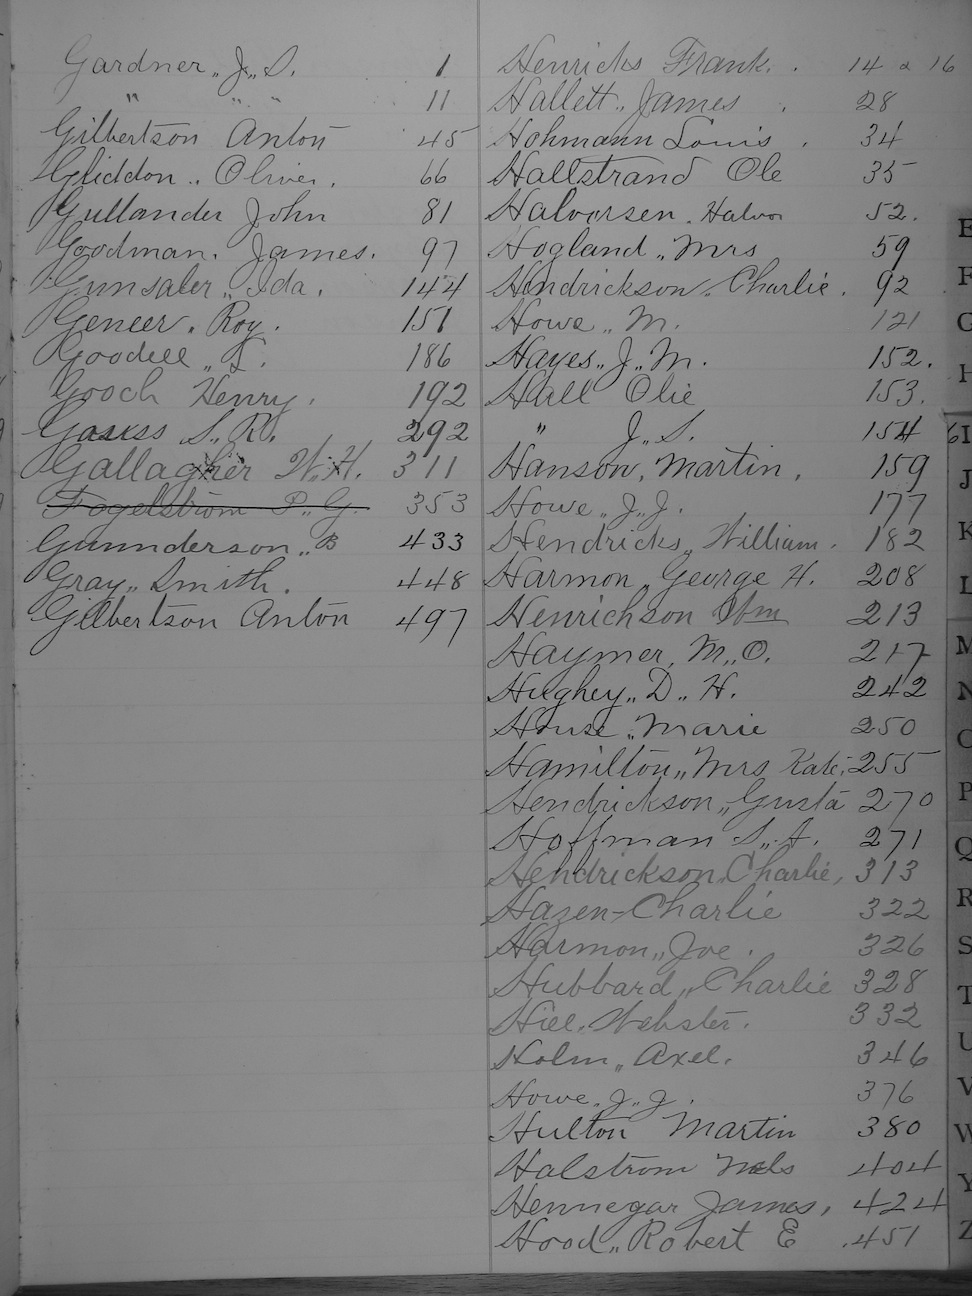 Gardner,, J,, S. 1
" " " 11
Gilbertson Anton 45
Gliddon ,, Oliver. 66
Gullander John 81
Goodman. James. 97
Gunsaler,, Ida. 144
Geneer,, Roy. 151
Goodell,, L. 186
Gooch Henry. 192
S. R. 292
Gallagher W. H. 311
Fogelstrom P,, G. 353
Gunnderson,, B 433
Gray,, Smith. 448
Gilbertson Anton 497
Henricks Frank. . 14 & 16
Hallett,, James . 28
Hohmann Louis . 34
Hallstrand Ole 35
Halvorsen. Halvor 52.
Hogland,, Mrs 59
Hendrickson. Charlie. 92
Howe,, M. 121
Hayes,, J,, M. 152.
Hall Olie 153.
" J,, S. 154
Hanson, Martin. 159
Howe,, J,, J. 177
Hendricks,, William. 182
Harmon,, George H. 208
Henrichson Wm 213
Haymer, M,, O. 217
Hughey,, D,, H. 242
House,, Marie 250
Hamilton,, Mrs Kate. 255
Hendrickson,, Gusta 270
Hoffman S,, A. 271
Hendrickson, Charlie, 313
Hazen-Charlie 322
Harmon,, Joe. 326
Hubbard,, Charlie 328
Hill. Webster. 332
Holm,, Axel. 346
Howe,, J,, J. 376
Hulton Martin 380
Halstrom Nels 404
Hennegar James, 424
Hood,, Robert E .451
E
F
G
H
6 I
J
K
L
M
N
O
P
Q
R
S
T
U
V
W
Y
Z